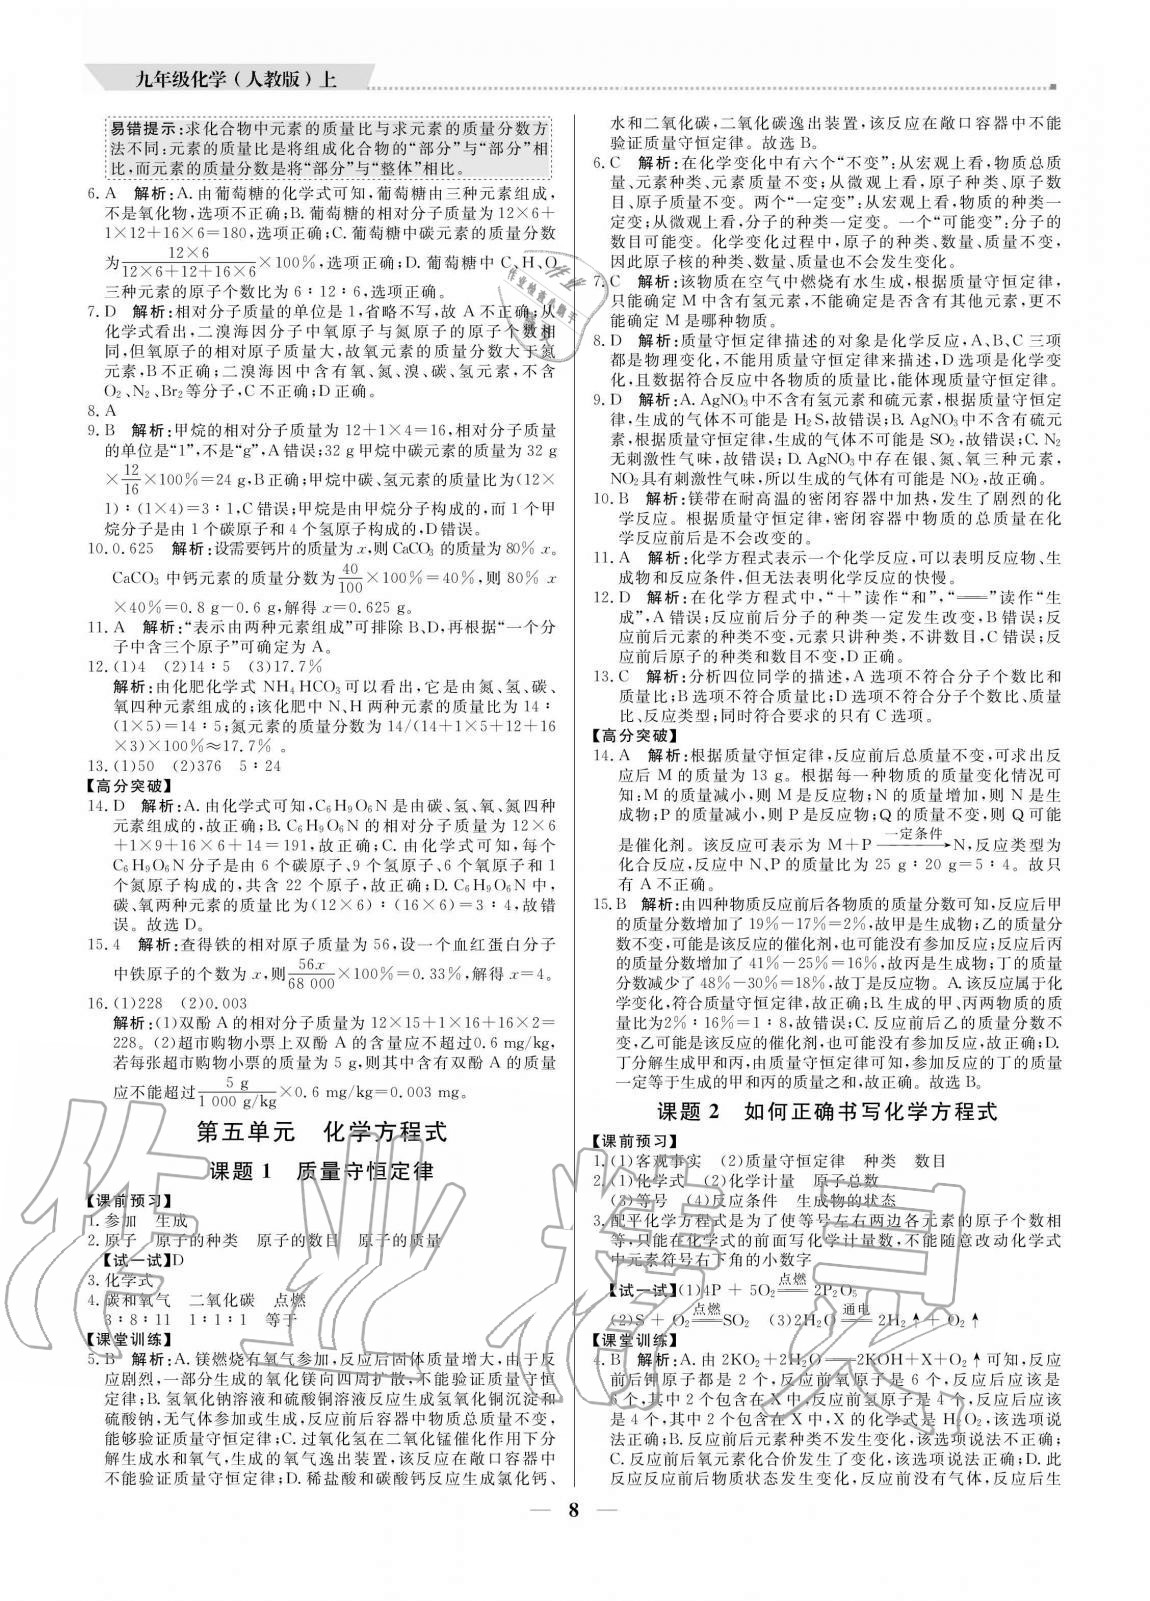 九年级化学(人教版)上
易错提示:求化合物中元素的质量比与求元素的质量分数方
法不同:元素的质量比是将组成化合物的“部分”与“部分”相
比,而元素的质量分数是将“部分”与“整体”相比。
6. A 解析:A. 由葡萄糖的化学式可知,葡萄糖由三种元素组成,
不是氧化物,选项不正确;B. 葡萄糖的相对分子质量为 12×6+
1×12+16×6=180,选项正确;C. 葡萄糖中碳元素的质量分数
为12×6/(12×6+12+16×6)×100%,选项正确;D. 葡萄糖中 C、H、O
三种元素的原子个数比为 6∶12∶6,选项正确。
7. D 解析:相对分子质量的单位是 1,省略不写,故 A 不正确;从
化学式看出,二溴海因分子中氧原子与氮原子的原子个数相
同,但氧原子的相对原子质量大,故氧元素的质量分数大于氮
元素,B 不正确;二溴海因中含有氧、氮、溴、碳、氢元素,不含
O₂、N₂、Br₂等分子,C 不正确;D 正确。
8. A
9. B 解析:甲烷的相对分子质量为 12+1×4=16,相对分子质量
的单位是“1”,不是“g”,A 错误;32 g 甲烷中碳元素的质量为 32 g
×12/16×100%=24 g,B 正确;甲烷中碳、氢元素的质量比为(12×
1)∶(1×4)=3∶1,C 错误;甲烷是由甲烷分子构成的,而 1 个甲
烷分子是由 1 个碳原子和 4 个氢原子构成的,D 错误。
10. 0.625 解析:设需要钙片的质量为 x,则 CaCO₃ 的质量为 80% x。
CaCO₃ 中钙元素的质量分数为40/100×100%=40%,则 80% x
×40%=0.8 g-0.6 g,解得 x=0.625 g。
11. A 解析:“表示由两种元素组成”可排除 B、D,再根据“一个分
子中含三个原子”可确定为 A。
12. (1)4 (2)14∶5 (3)17.7%
解析:由化肥化学式 NH₄HCO₃可以看出,它是由氮、氢、碳、
氧四种元素组成的;该化肥中 N、H 两种元素的质量比为 14∶
(1×5)=14∶5;氮元素的质量分数为 14/(14+1×5+12+16
×3)×100%≈17.7% 。
13. (1)50 (2)376 5∶24
【高分突破】
14. D 解析:A. 由化学式可知,C₆H₉O₆N 是由碳、氢、氧、氮四种
元素组成的,故正确;B. C₆H₉O₆N 的相对分子质量为 12×6
+1×9+16×6+14=191,故正确;C. 由化学式可知,每个
C₆H₉O₆N 分子是由 6 个碳原子、9 个氢原子、6 个氧原子和 1
个氮原子构成的,共含 22 个原子,故正确;D. C₆H₉O₆N 中,
碳、氧两种元素的质量比为(12×6)∶(16×6)=3∶4,故错
误。故选 D。
15. 4 解析:查得铁的相对原子质量为 56,设一个血红蛋白分子
中铁原子的个数为 x,则56x/68 000×100%=0.33%,解得 x=4。
16. (1)228 (2)0.003
解析:(1)双酚 A 的相对分子质量为 12×15+1×16+16×2=
228。(2)超市购物小票上双酚 A 的含量应不超过0.6 mg/kg,
若每张超市购物小票的质量为 5 g,则其中含有双酚 A 的质量
应不能超过5 g/1 000 g/kg×0.6 mg/kg=0.003 mg。
第五单元 化学方程式
课题 1 质量守恒定律
【课前预习】
1. 参加 生成
2. 原子 原子的种类 原子的数目 原子的质量
【试一试】D
3. 化学式
4. 碳和氧气 二氧化碳 点燃
3∶8∶11 1∶1∶1 等于
【课堂训练】
5. B 解析:A. 镁燃烧有氧气参加,反应后固体质量增大,由于反
应剧烈,一部分生成的氧化镁向四周扩散,不能验证质量守恒
定律;B. 氢氧化钠溶液和硫酸铜溶液反应生成氢氧化铜沉淀和
硫酸钠,无气体参加或生成,反应前后容器中物质总质量不变,
能够验证质量守恒定律;C. 过氧化氢在二氧化锰催化作用下分
解生成水和氧气,生成的氧气逸出装置,该反应在敞口容器中
不能验证质量守恒定律;D. 稀盐酸和碳酸钙反应生成氯化钙、
水和二氧化碳,二氧化碳逸出装置,该反应在敞口容器中不能
验证质量守恒定律。故选 B。
6. C 解析:在化学变化中有六个“不变”:从宏观上看,物质总质
量、元素种类、元素质量不变;从微观上看,原子种类、原子数
目、原子质量不变。两个“一定变”:从宏观上看,物质的种类一
定变;从微观上看,分子的种类一定变。一个“可能变”:分子的
数目可能变。化学变化过程中,原子的种类、数量、质量不变,
因此原子核的种类、数量、质量也不会发生变化。
7. C 解析:该物质在空气中燃烧有水生成,根据质量守恒定律,
只能确定 M 中含有氢元素,不能确定是否含有其他元素,更不
能确定 M 是哪种物质。
8. D 解析:质量守恒定律描述的对象是化学反应,A、B、C 三项
都是物理变化,不能用质量守恒定律来描述,D 选项是化学变
化,且数据符合反应中各物质的质量比,能体现质量守恒定律。
9. D 解析:A. AgNO₃中不含有氢元素和硫元素,根据质量守恒定
律,生成的气体不可能是 H₂S,故错误;B. AgNO₃中不含有硫元
素,根据质量守恒定律,生成的气体不可能是 SO₂,故错误;C. N₂
无刺激性气味,故错误;D. AgNO₃中存在银、氮、氧三种元素,
NO₂具有刺激性气味,所以生成的气体有可能是 NO₂,故正确。
10. B 解析:镁带在耐高温的密闭容器中加热,发生了剧烈的化
学反应。根据质量守恒定律,密闭容器中物质的总质量在化
学反应前后是不会改变的。
11. A 解析:化学方程式表示一个化学反应,可以表明反应物、生
成物和反应条件,但无法表明化学反应的快慢。
12. D 解析:在化学方程式中,“+”读作“和”,“══”读作“生
成”,A 错误;反应前后分子的种类一定发生改变,B 错误;反
应前后元素的种类不变,元素只讲种类,不讲数目,C 错误;反
应前后原子的种类和数目不变,D 正确。
13. C 解析:分析四位同学的描述,A 选项不符合分子个数比和
质量比;B 选项不符合质量比;D 选项不符合分子个数比、质量
比、反应类型;同时符合要求的只有 C 选项。
【高分突破】
14. A 解析:根据质量守恒定律,反应前后总质量不变,可求出反
应后 M 的质量为 13 g。根据每一种物质的质量变化情况可
知:M 的质量减小,则 M 是反应物;N 的质量增加,则 N 是生
成物;P 的质量减小,则 P 是反应物;Q 的质量不变,则 Q 可能
是催化剂。该反应可表示为 M+P 一定条件→N,反应类型为
化合反应,反应中 N、P 的质量比为 25 g∶20 g=5∶4。故只
有 A 不正确。
15. B 解析:由四种物质反应前后各物质的质量分数可知,反应后甲
的质量分数增加了 19%-17%=2%,故甲是生成物;乙的质量分
数不变,可能是该反应的催化剂,也可能没有参加反应;反应后丙
的质量分数增加了 41%-25%=16%,故丙是生成物;丁的质量
分数减少了 48%-30%=18%,故丁是反应物。A. 该反应属于化
学变化,符合质量守恒定律,故正确;B. 生成的甲、丙两物质的质
量比为2%∶16%=1∶8,故错误;C. 反应前后乙的质量分数不
变,乙可能是该反应的催化剂,也可能没有参加反应,故正确;D.
丁分解生成甲和丙,由质量守恒定律可知,参加反应的丁的质量
一定等于生成的甲和丙的质量之和,故正确。故选 B。
课题 2 如何正确书写化学方程式
【课前预习】
1. (1)客观事实 (2)质量守恒定律 种类 数目
2. (1)化学式 (2)化学计量 原子总数
(3)等号 (4)反应条件 生成物的状态
3. 配平化学方程式是为了使等号左右两边各元素的原子个数相
等,只能在化学式的前面写化学计量数,不能随意改动化学式
中元素符号右下角的小数字
【试一试】(1)4P + 5O₂ 点燃══ 2P₂O₅
(2)S + O₂ 点燃══SO₂ (3)2H₂O 通电══ 2H₂↑+ O₂↑
【课堂训练】
4. B 解析:A. 由 2KO₂+2H₂O══2KOH+X+O₂↑可知,反应
前后钾原子都是 2 个,反应前氧原子是 6 个,反应后应该是
6 个,其中 2 个包含在 X 中,反应前氢原子是 4 个,反应后应该
是 4 个,其中 2 个包含在 X 中,X 的化学式是 H₂O₂,该选项说
法正确;B. 反应前后元素种类不发生变化,该选项说法不正确;
C. 反应前后氧元素化合价发生了变化,该选项说法正确;D. 此
反应反应前后物质状态发生变化,反应前没有气体,反应后生
8
作业精灵